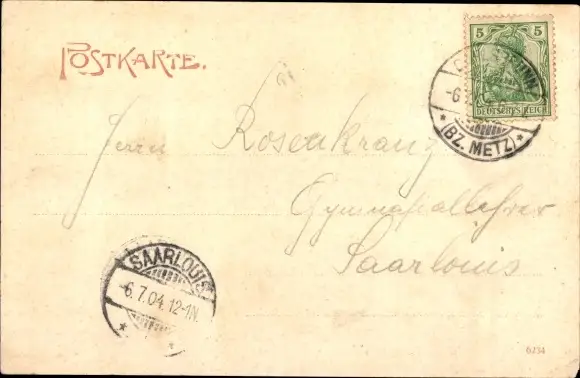 POSTKARTE.
5 5
DEUTSCHES REICH
-6
*(BZ. METZ)*
Herrn Rosenkranz
Gymnasiallehrer
Saarlouis
SAARLOUIS
-6.7.04.12-1N.
6234